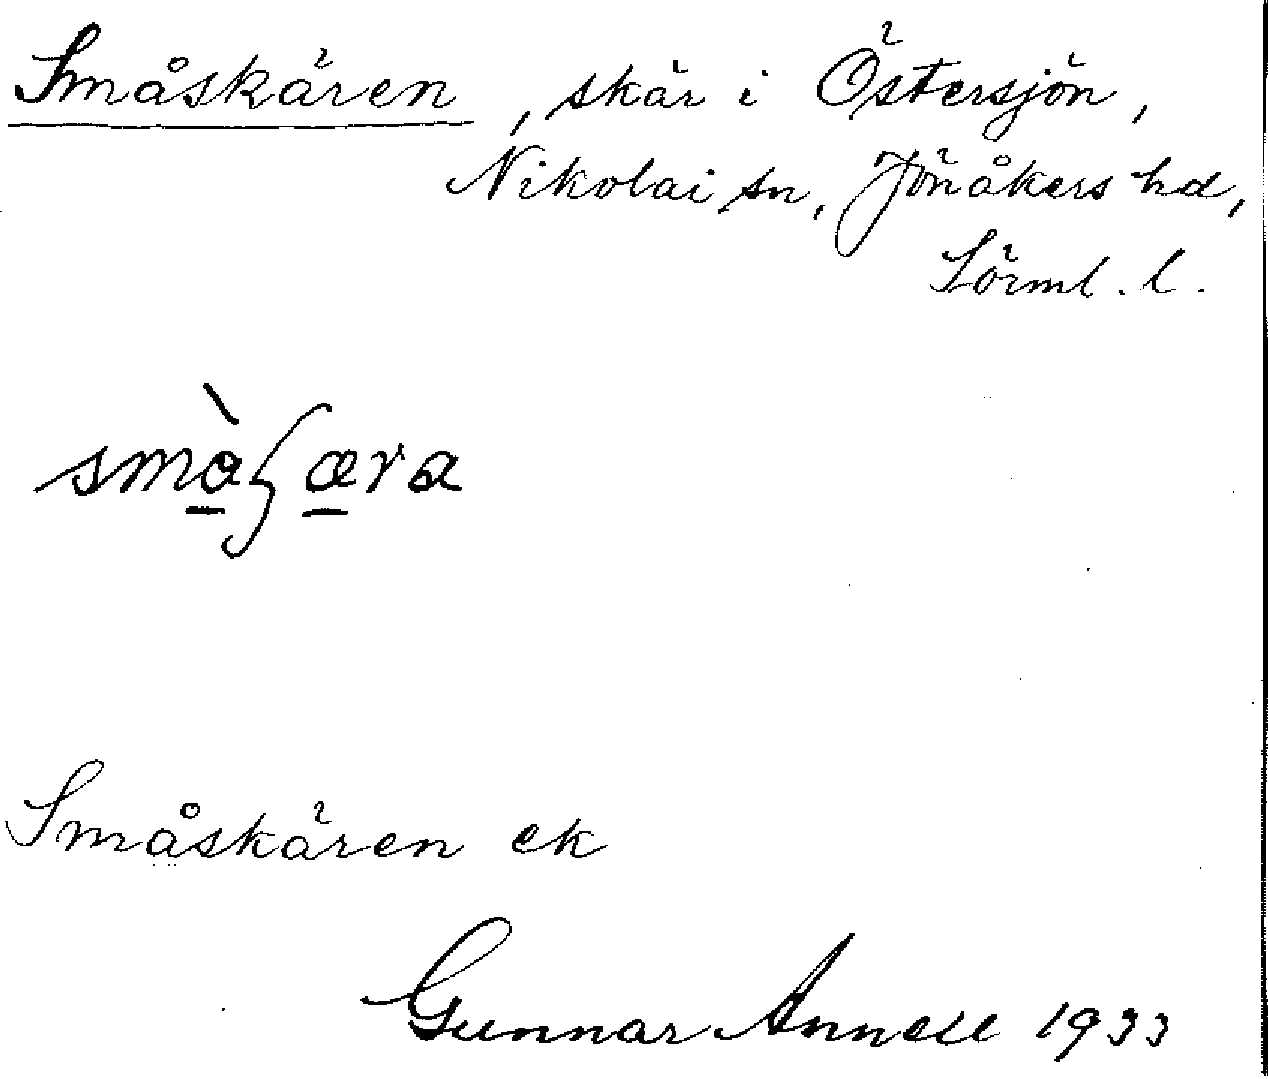 Småskären, skär i Östersjön,
Nikolai sn, Jönåkers hd,
Sörml. l.
småʃæra
Småskären ek
Gunnar Annell 1933